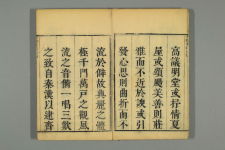 高議明堂或抒情夏
屋或頌颺美善則莊
雅而不近於諛或引
發心思則曲折而不
流於僻故典麗之體
極千門萬戶之觀風
流之音備一唱三歎
之致自秦漢以建齊